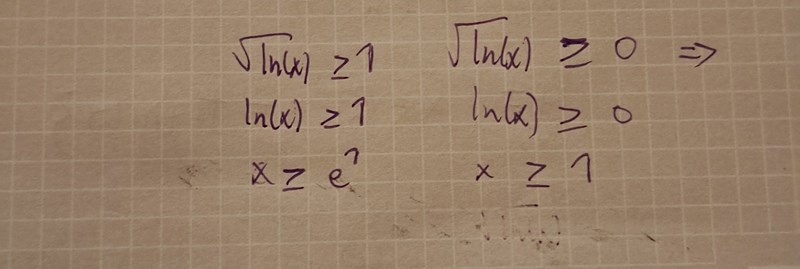 √ln(x) ≥ 1 √ln(x) ≥ 0 ⇒
ln(x) ≥ 1 ln(x) ≥ 0
x ≥ e¹ x ≥ 1